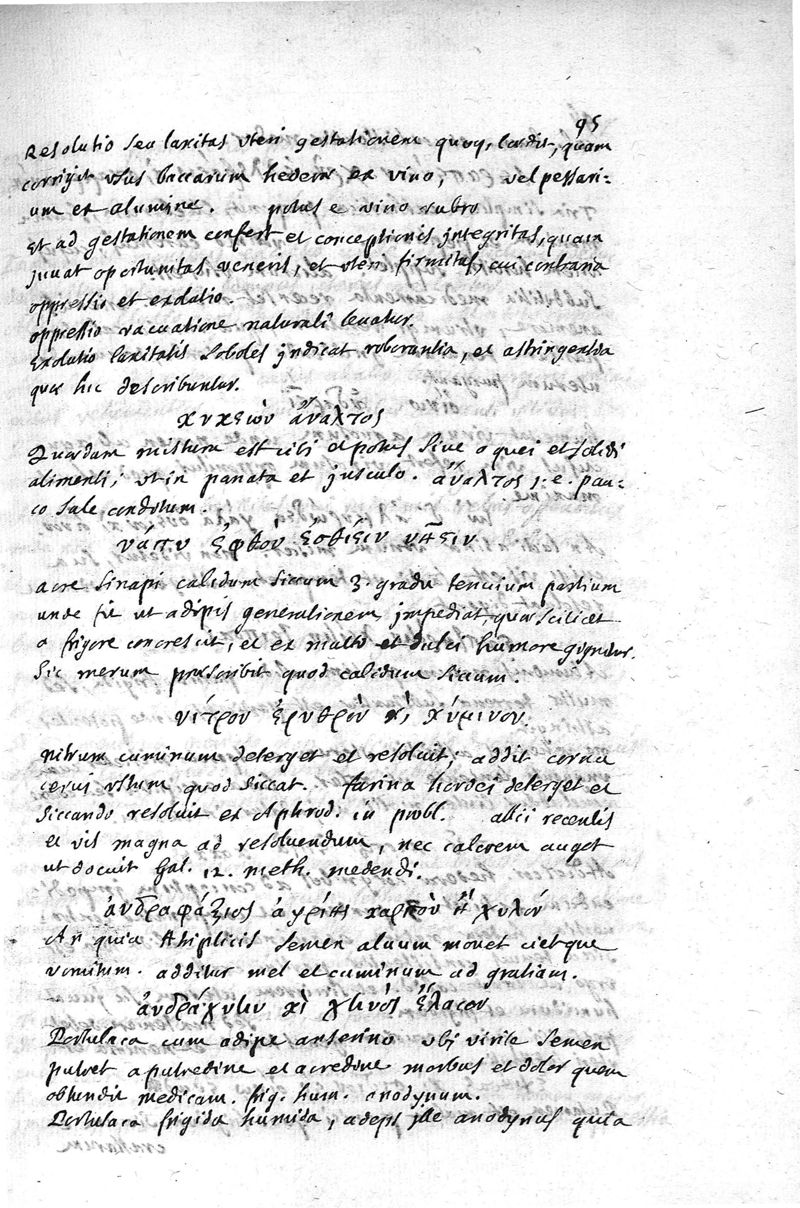 95
Resolutio seu laxitas vteri gestationem quoq, lædit, quam
corrigit vsus baccarum hederæ ex vino, vel pessari=
um ex alumine. potus e vino rubro
Et ad gestationem confert et conceptionis jntegritas, quam
juuat oportunitas veneris, et vteri firmitas, cui contraria
oppressio et exolutio.
oppressio vacuatione naturali leuatur.
Exolutio laxitatis soboles jndicat roborantia, et astringentia
quæ hic describuntur.
κυκεὼν ἄναλτος
Quædam mistura est cibi et potus siue et solidi
alimenti, vt in panata et jusculo. ἄναλτος j. e. pau=
co sale conditum.
νάπυ ἑφθὸν ἐσθίειν
acre sinapi calidum siccum 3. gradu tenuium partium
unde fit ut adipis generationem jmpediat, quæ scilicet
a frigore concrescit, et ex multo et dulci humore gignitur.
Sic merum præscribit quod calidum siccum.
νίτρον ἐρυθρὸν κὶ κύμινον.
nitrum cuminum deterget et resoluit, addit cornu
cerui vstum quod siccat. farina hordei deterget et
siccando resoluit ex Aphrod. in probl. allii recentis
et vis magna ad resoluendum, nec calorem auget
ut docuit Gal. 12. meth. medendi.
ἀνδραφάξιος ἀγρίης καρπὸν ἢ χυλόν
An quia Atriplicis semen aluum mouet cietque
vomitum. additur mel et cuminum ad gratiam.
ἀνδράχνην κὶ χηνὸς ἔλαιον
Portulaca cum adipe anserino vbi virile semen
putret a putredine et acredine morbus et dolor quem
obtundit medicam. frig. hum. anodynum.
Portulaca frigida humida, adeps jlle anodynus quia